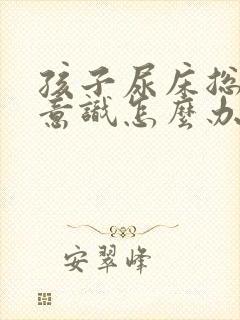 孩子尿床总
意識怎麼办
安翠峰